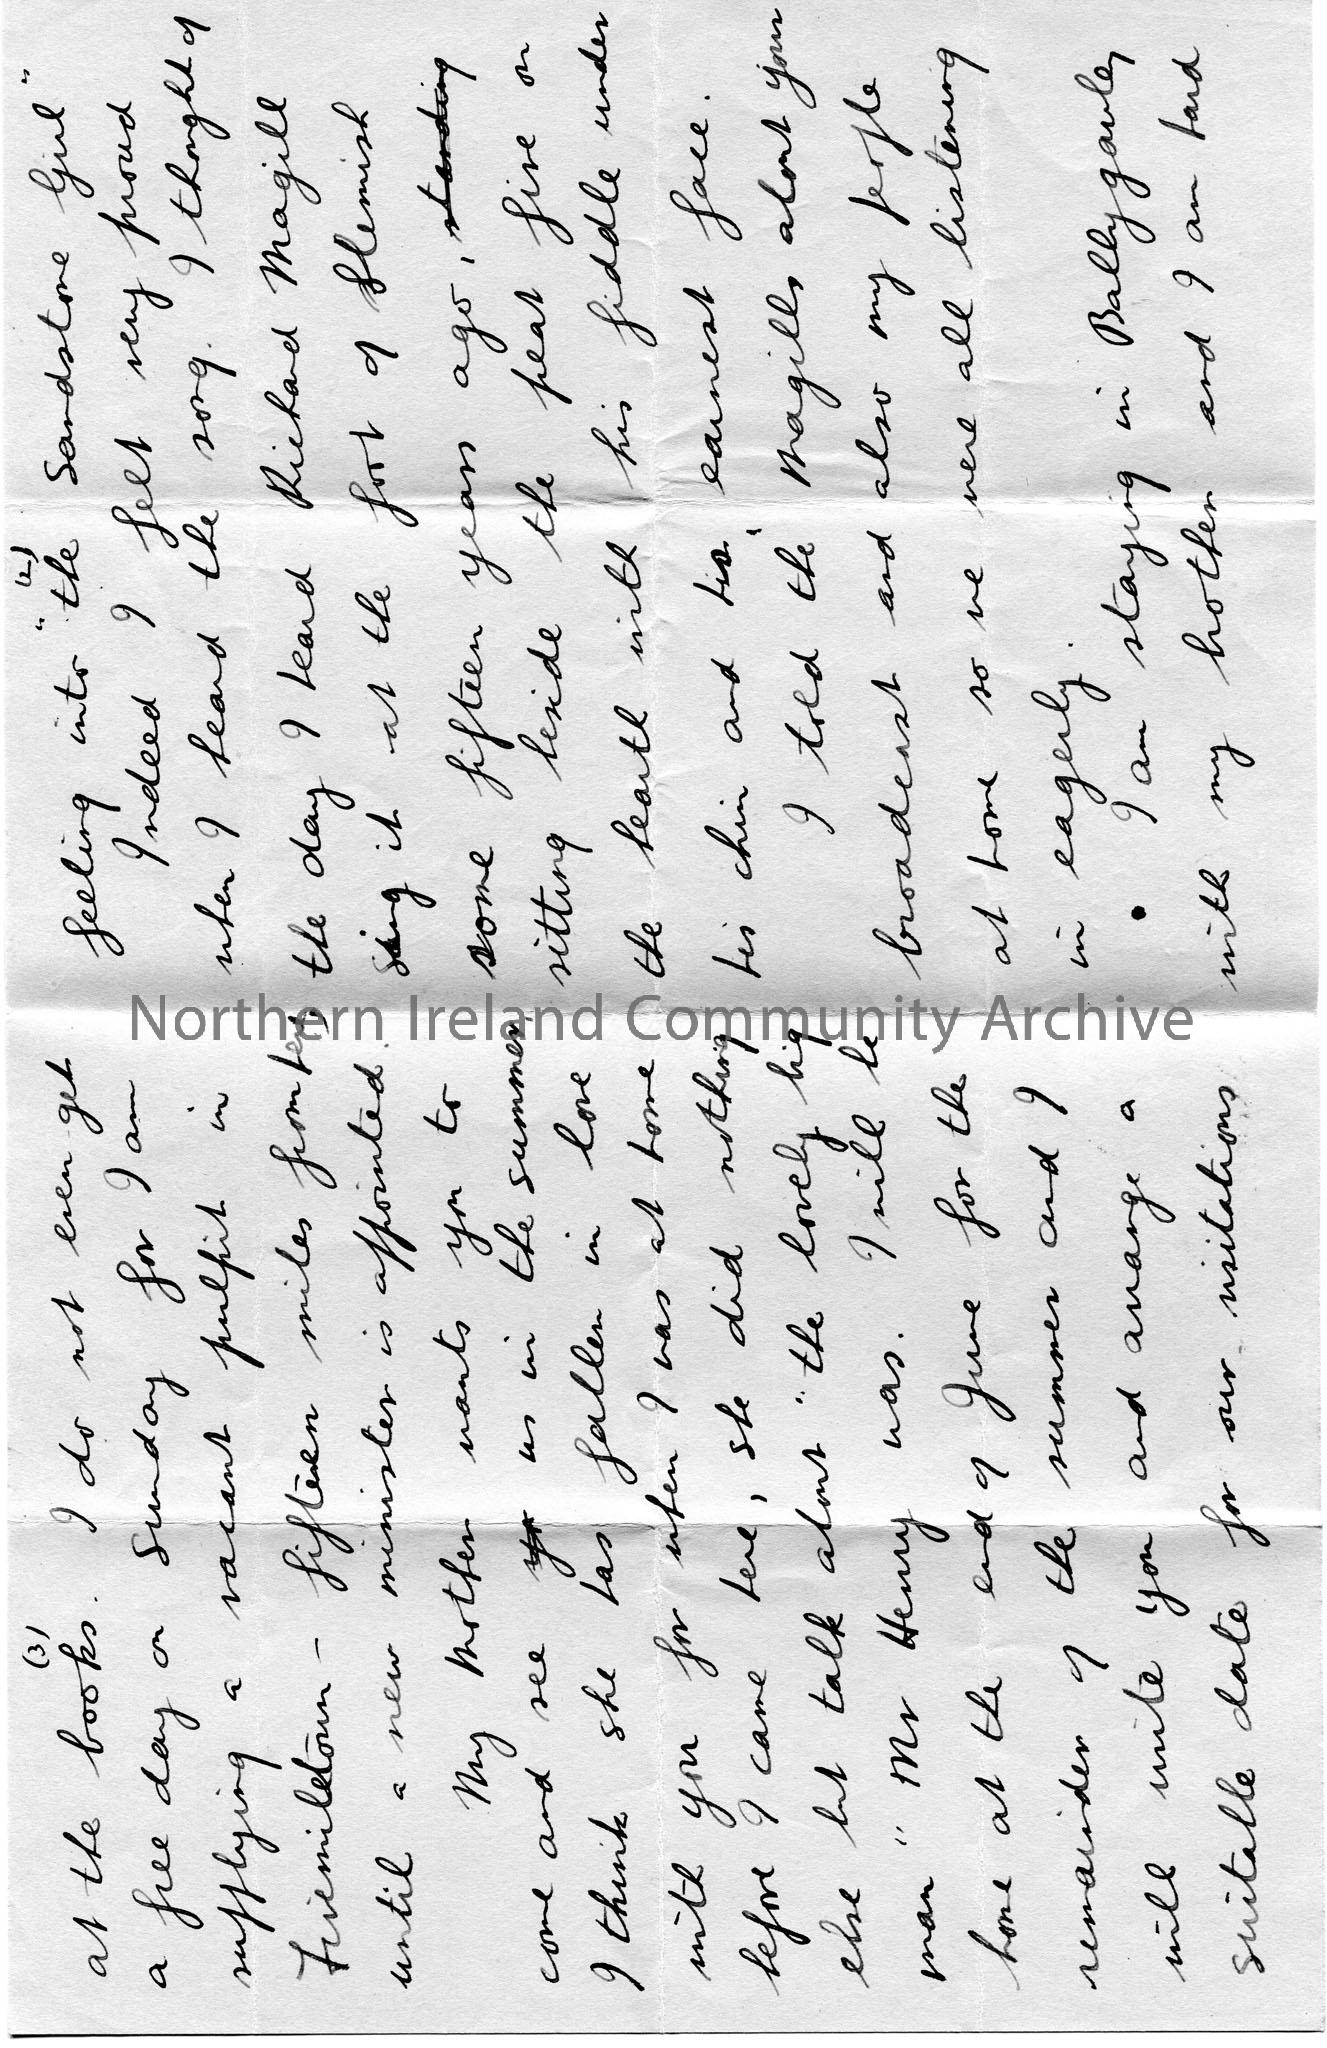 (3)
at the books. I do not even get
a free day on Sunday for I am
supplying a vacant pulpit in
Fivemiletown – fifteen miles from here,
until a new minister is appointed.
My Mother wants you to
come and see yo us in the summer.
I think she has fallen in love
with you for when I was at home
before I came here, she did nothing
else but talk about "the lovely big
man" "Mr Henry was. I will be
home at the end of June for the
remainder of the summer and I
will write you and arrange a
suitable date for our visitations
(4)
feeling into "the Sandstone Girl"
Indeed I felt very proud
when I heard the song. I thought of
the day I heard Richard Magill
sing it at the foot of Slemish
some fifteen years ago, standing
sitting beside the peat fire on
the hearth with his fiddle under
his chin and his earnest face.
I told the Magills about your
broadcast and also my people
at home so we were all listening
in eagerly.
I am staying in Ballygawley
with my brother and I am hard
Northern Ireland Community Archive